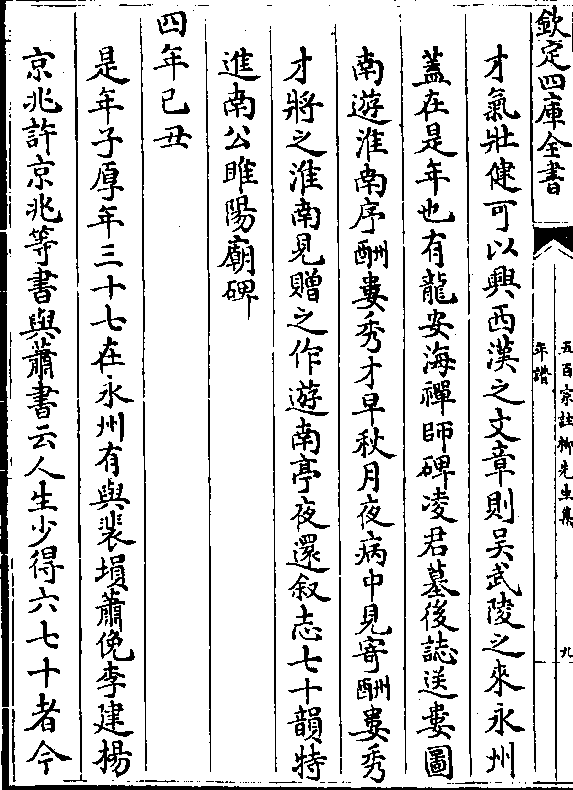 欽定四庫全書
五百家註柳先生集
年譜
九
才氣壯健可以興西漢之文章則吳武陵之來永州
蓋在是年也有龍安海禪師碑凌君墓後誌送婁圖
南遊淮南序酬婁秀才早秋月夜病中見寄酬婁秀
才將之淮南見贈之作遊南亭夜還叙志七十韻特
進南公睢陽廟碑
四年己丑
是年子厚年三十七在永州有與裴塤蕭俛李建楊
京兆許京兆等書與蕭書云人生少得六七十者今